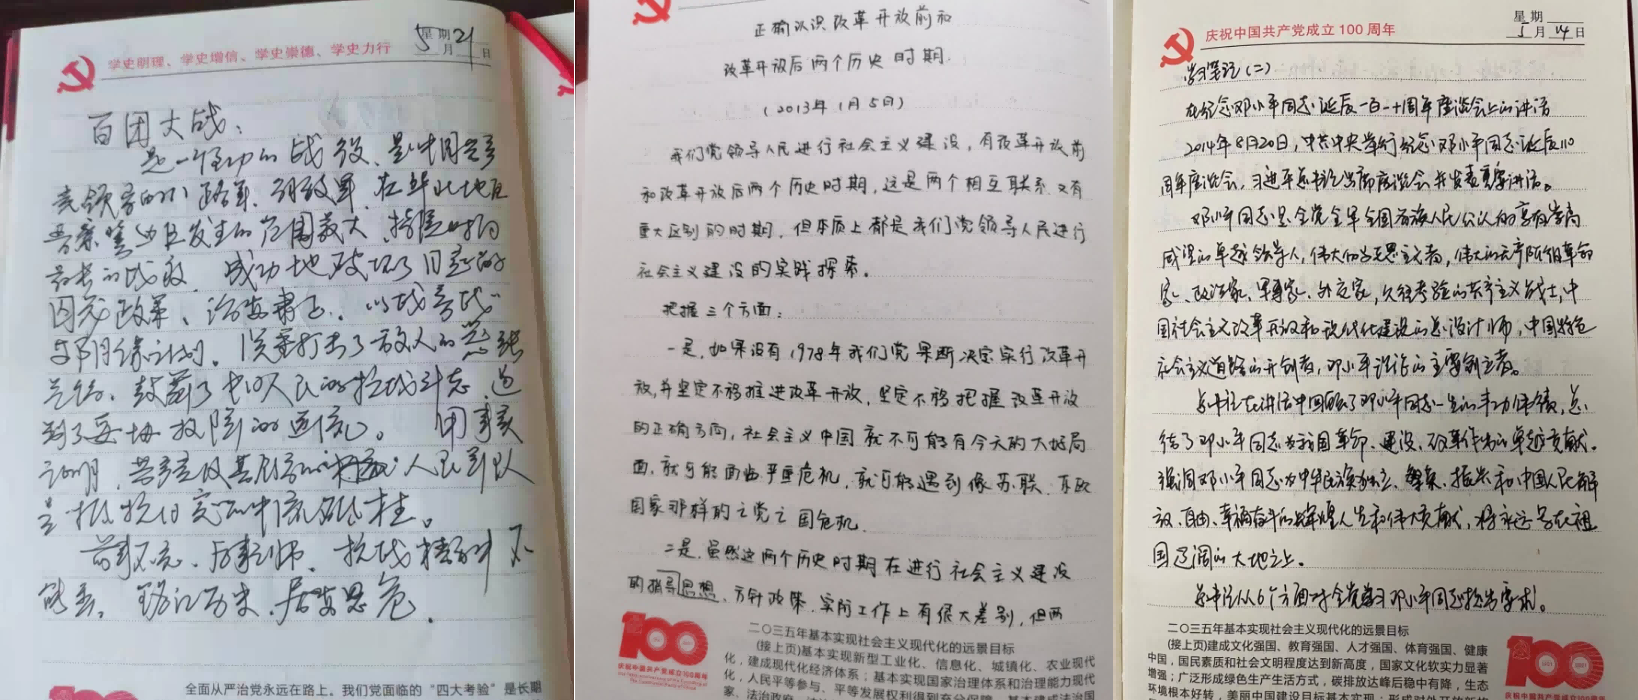 学史明理、学史增信、学史崇德、学史力行
星期
5月21日
百团大战:
是一个 的战役、是中国共产
党领导的八路军、 在华北地区
发生的范围最大、持续时间
最长的战役. 成功地破坏了日
囚笼政策、
打击了敌人的
鼓舞了 人民的抗战斗志、遏
制了妥协投降的逆流。 用事实
证明, 共产党及其领导的 人民军队
是 抗日 的中流砥柱。
前事不忘、后事之师、抗战精神不
能丢, 铭记历史、居安思危.
全面从严治党永远在路上。我们党面临的“四大考验”是长期
正确认识改革开放前和
改革开放后两个历史时期.
(2013年1月5日)
我们党领导人民进行社会主义建设,有改革开放前
和改革开放后两个历史时期,这是两个相互联系又有
重大区别的时期,但本质上都是我们党领导人民进行
社会主义建设的实践探索。
把握三个方面:
一是,如果没有1978年我们党果断决定实行改革开
放,并坚定不移推进改革开放,坚定不移把握改革开放
的正确方向,社会主义中国就不可能有今天的大好局
面,就可能面临严重危机,就可能遇到像苏联、东欧
国家那样的亡党亡国危机.
二是,虽然这两个历史时期在进行社会主义建设
的指导思想、方针政策、实际工作上有很大差别,但两
100
庆祝中国共产党成立100周年
二〇三五年基本实现社会主义现代化的远景目标
(接上页)基本实现新型工业化、信息化、城镇化、农业现代
化,建成现代化经济体系;基本实现国家治理体系和治理能力现代
化,人民平等参与、平等发展权利得到充分保障,基本建成法治国
家、法治政府、法治
庆祝中国共产党成立100周年
星期
5月14日
学习笔记(二)
在纪念邓小平同志诞辰一百一十周年座谈会上的讲话
2014年8月20日,中共中央举行纪念邓小平同志诞辰110
周年座谈会,习近平总书记出席座谈会并发表重要讲话。
邓小平同志是全党全军全国各族人民公认的享有崇高
威望的卓越领导人,伟大的马克思主义者,伟大的无产阶级革命
家、政治家、军事家、外交家,久经考验的共产主义战士,中
国社会主义改革开放和现代化建设的总设计师,中国特色
社会主义道路的开创者,邓小平理论的主要创立者。
总书记在讲话中回顾了邓小平同志一生的丰功伟绩,总
结了邓小平同志为我国革命、建设、改革作出的卓越贡献。
强调邓小平同志为中华民族独立、繁荣、振兴和中国人民解
放、自由、幸福奋斗的辉煌人生和伟大贡献,将永远书写在祖
国辽阔的大地之上。
总书记从6个方面对全党学习邓小平同志提出要求。
二〇三五年基本实现社会主义现代化的远景目标
(接上页)建成文化强国、教育强国、人才强国、体育强国、健康
中国,国民素质和社会文明程度达到新高度,国家文化软实力显著
增强;广泛形成绿色生产生活方式,碳排放达峰后稳中有降,生态
环境根本好转,美丽中国建设目标基本实现;形成对外开放新
100